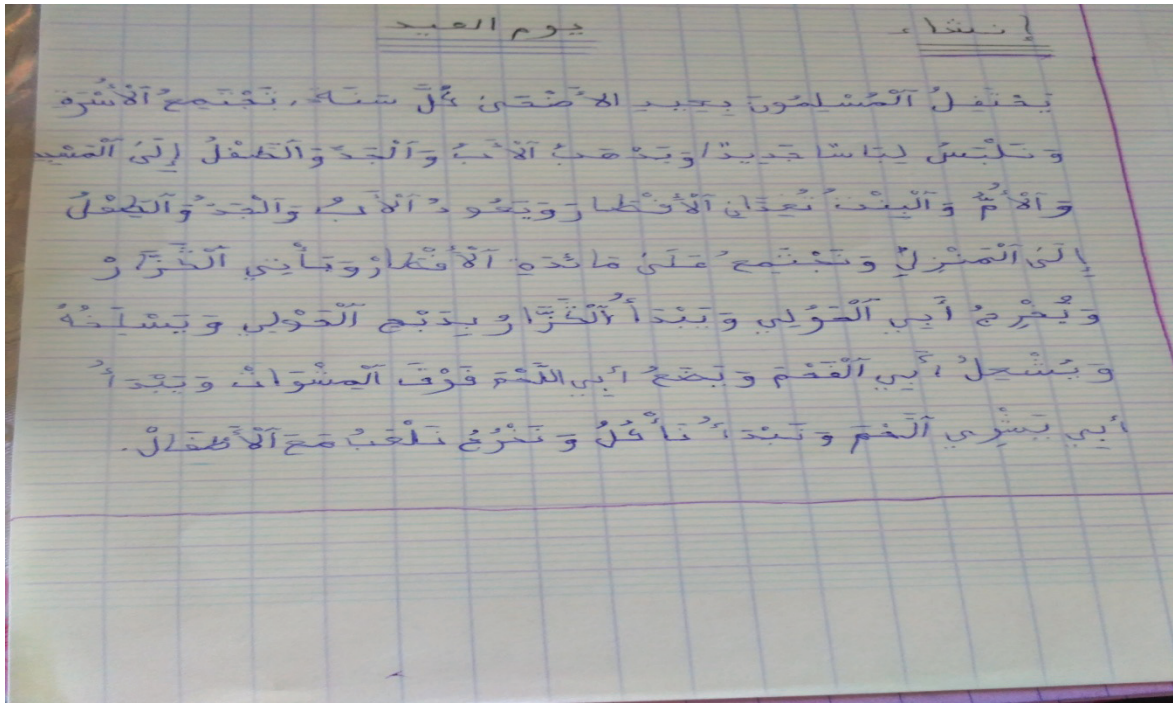 إنشاء يوم العيد
يَحْتَفِلُ ٱلْمُسْلِمُونَ بِعِيدِ الأَضْحَىٰ كُلَّ سَنَة، تَجْتَمِعُ ٱلْأُسْرَة
وَ تَلْبَسُ لِبَاسًا جَدِيدًا وَيَذْهَبُ ٱلْأَبُ وَٱلْجَدُّ وَٱلطِّفْلُ إِلَىٰ ٱلْمَسْجِد
وَٱلْأُمُّ وَٱلْبِنْتُ تُعِدَّانِ ٱلْأَفْطَارَ وَيَعُودُ ٱلْأَبُ وَالْجَدُّ وَٱلطِّفْلُ
إِلَىٰ ٱلْمَنْزِلِ وَتَجْتَمِعُ عَلَىٰ مَائِدَةِ ٱلْأَفْطَارْ وَيَأْتِي ٱلْخَزَّارْ
وَ يُخْرِجُ أَبِي ٱلْحَوْلِي وَيَبْدَأُ ٱلْخَزَّارُ يِدَبْحِ ٱلْحَوْلِي وَيَسْلَخُهُ
وَ يُشْعِلُ أَبِي ٱلْفَحْمَ وَيَضَعُ أَبِي اللَّحْمَ فَوْقَ ٱلْمِشْوَاتْ وَيَبْدَأُ
أبي يَشْوِي ٱلَّحْمَ وَنَبْدَأُ نَأْكُلُ وَنَخْرُجُ نَلْعَبُ مَعَ ٱلْأَطْفَالْ.